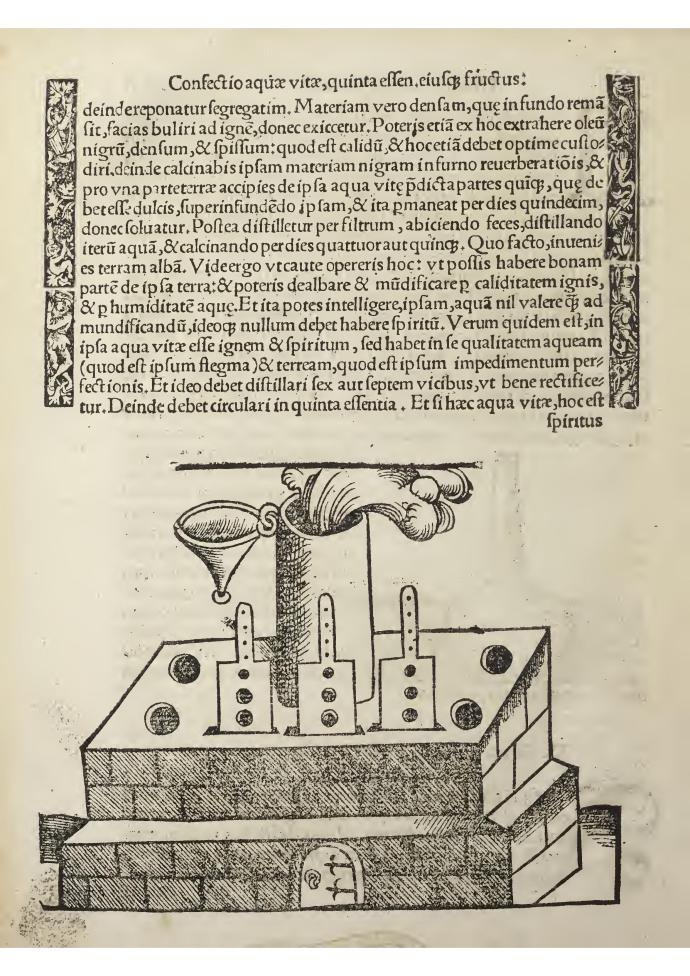 Confectio aquæ vitæ, quinta essen. eiusq́ꝫ fructus:
deinde reponatur segregatim. Materiam vero densam, quę in fundo remã
sit, facias buliri ad ignẽ, donec exiccetur. Poterįs etiã ex hoc extrahere oleũ
nigrũ, densum, & spissum: quod est calidũ, & hoc etiã debet optime custo⸗
diri. deinde calcinabis ipsam materiam nigram in furno reuerberatiõis, &
pro vna parte terræ accipies de ipsa aqua vitę p̃dicta partes quiq́ꝫ, quę de
bet esse dulcis, superinfundẽdo ipsam, & ita ꝑmaneat per dies quindecim,
donec soluatur. Postea distilletur per filtrum, abiciendo feces, distillando
iterũ aquã, & calcinando per dies quattuor aut quinq́ꝫ. Quo facto, inueni⸗
es terram albã. Vide ergo vt caute opereris hoc: vt possis habere bonam
partẽ de ipsa terra: & poteris dealbare & mũdificare ꝑ caliditatem ignis,
& ꝑ humiditatẽ aquę. Et ita potes intelligere, ipsam, aquã nil valere q̃ꝫ ad
mundificandũ, ideoq́ꝫ nullum debet habere spiritũ. Verum quidem est, in
ipsa aqua vitæ esse ignem & spiritum, sed habet in se qualitatem aqueam
(quod est ipsum flegma) & terream, quod est ipsum impedimentum per⸗
fectionis. Et ideo debet distillari sex aut septem vicibus, vt bene rectifice⸗
tur. Deinde debet circulari in quinta essentia. Et si hæc aqua vitæ, hoc est
spiritus